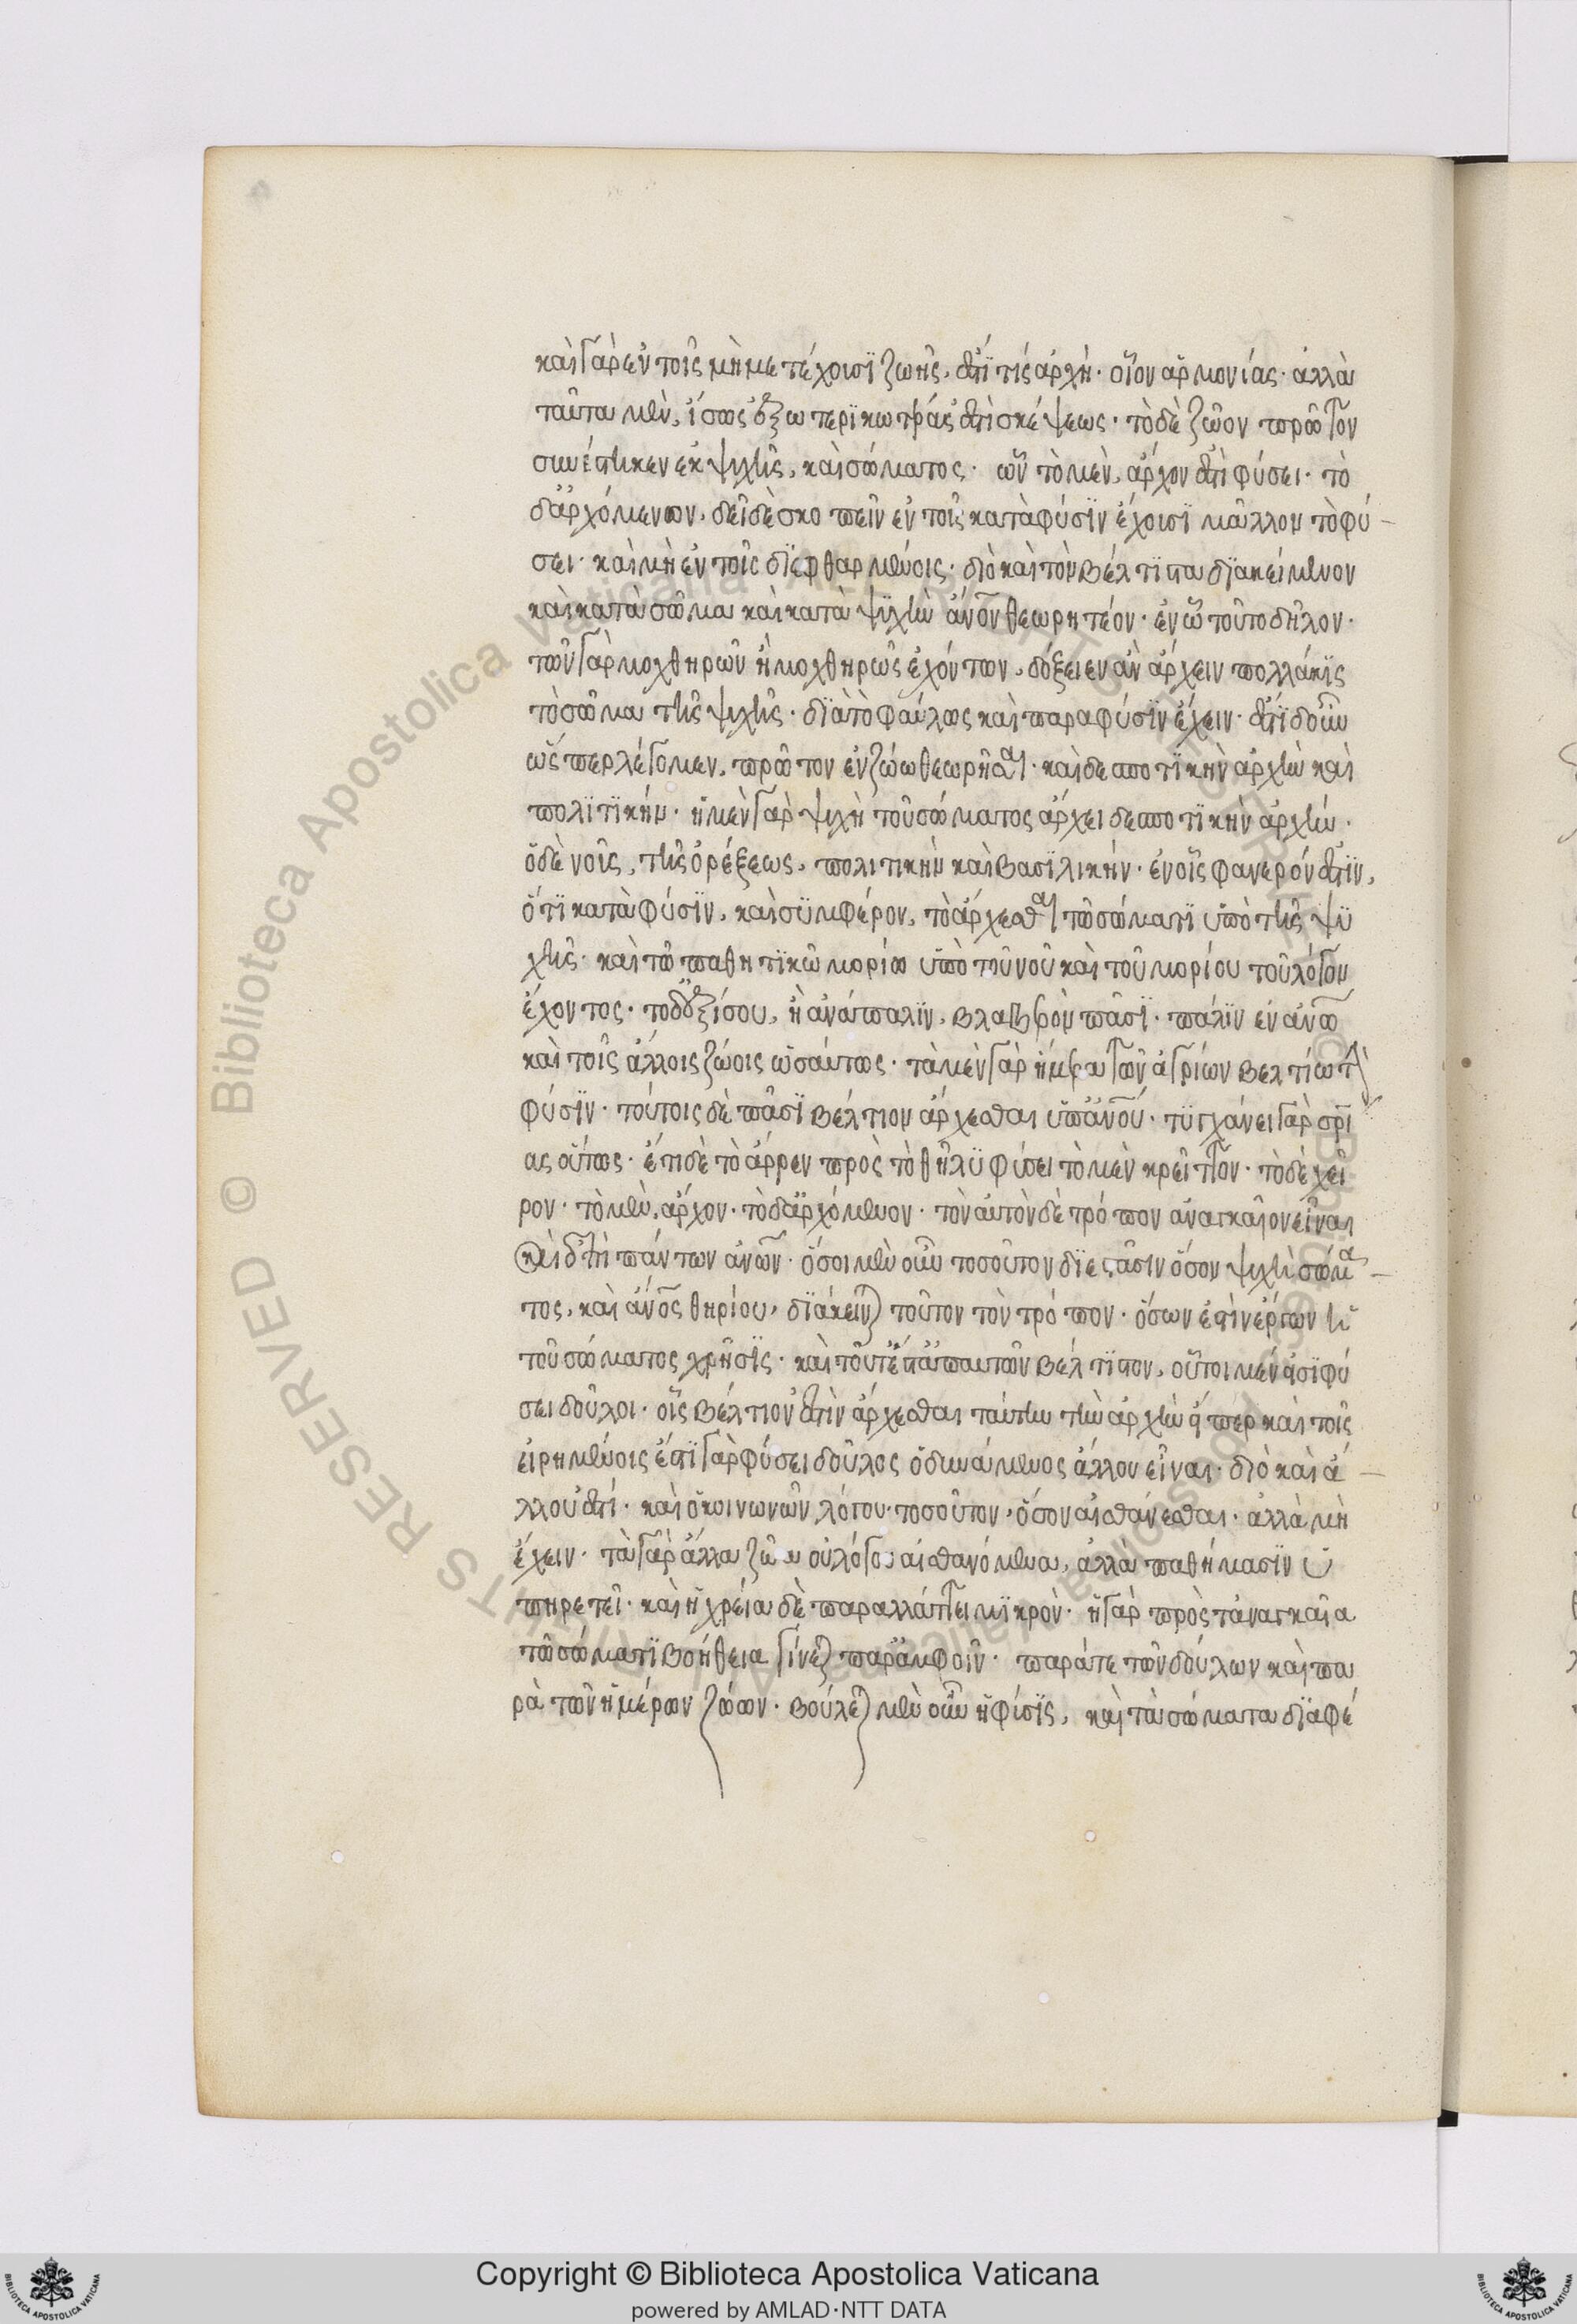 καὶ γὰρ ἐν τοῖς μὴ μετέχουσϊ ζωῆς, ἐστί τις ἀρχὴ· οἷον ἁρμονίας· ἀλλὰ
ταῦτα μὲν, ἴσως ἐξωτερϊκωτέρας ἐστὶ σκέψεως· τὸ δὲ ζῶον πρῶτον
συνέστηκεν ἐκ ψυχῆς, καὶ σώματος· ὧν τὸ μὲν, ἄρχον ἐστὶ φύσει· τὸ
δ' ἀρχόμενον, δεῖ δὲ σκοπεῖν ἐν τοῖς κατὰ φύσϊν ἔχουσϊ μᾶλλον τὸ φύ-
σει· καὶ μὴ ἐν τοῖς δϊεφθαρμένοις· διὸ καὶ τὸν βέλτϊστα δϊακείμενον
καὶ κατὰ σῶμα καὶ κατὰ ψϋχὴν ἄνον θεωρητέον· ἐν ᾧ τοῦτο δῆλον·
τῶν γὰρ μοχθηρῶν ἢ μοχθηρῶς ἐχόντων, δόξειεν ἂν ἄρχειν πολλάκϊς
τὸ σῶμα τῆς ψυχῆς· δϊὰ τὸ φαύλως καὶ παρα φύσϊν ἔχειν· ἔστϊ δ οὖν
ὥσπερ λέγομεν, πρῶτον ἐν ζώω θεωρῆσαι· καὶ δεσποτϊκὴν ἀρχὴν καὶ
πολϊτϊκήν· ἡ μὲν γὰρ ψυχὴ τοῦ σώματος ἄρχει δεσποτϊκὴν ἀρχήν·
ὁ δὲ νοῦς, τῆς ὀρέξεως, πολιτικὴν καὶ βασϊλικήν· ἐν οἷς φανερόν ἐστϊν,
ὅτϊ κατὰ φύσϊν, καὶ συμφέρον, τὸ ἄρχεσθαι τῶ σώματϊ ὑπὸ τῆς ψϋ
χῆς· καὶ τῶ παθητϊκῶ μορίω ὑπὸ τοῦ νοῦ καὶ τοῦ μορίου τοῦ λόγον
ἔχοντος· τὸ δ' ἐξίσου, ἢ ἀνάπαλϊν, βλαβερὸν πᾶσϊ· πάλϊν ἐν ἀνω
καὶ τοῖς ἄλλοις ζώοις ὡσαύτως· τὰ μὲν γὰρ ἥμερα τῶν ἀγρίων βελτίω τὴν
φύσϊν· τούτοις δὲ πᾶσϊ βέλτιον ἄρχεσθαι ὑπ' ἀνου· τϋγχάνει γὰρ σρι
ας οὕτως· ἔτι δὲ τὸ ἄρρεν πρὸς τὸ θῆλϋ φύσει τὸ μὲν κρεῖττον· τὸ δὲ χεῖ
ρον· τὸ μὲν, ἄρχον· τὸ δ' ἀρχόμενον· τὸν αὐτὸν δὲ τρόπον ἀναγκαῖον εἶναι
καὶ ἐπὶ πάντων ἀνων· ὅσοι μὲν οὖν τοσοῦτον δϊεστᾶσιν ὅσον ψυχὴ σώμα-
τος, καὶ ἄνος θηρίου, δϊάκεινται τοῦτον τὸν τρόπον· ὅσων ἐστὶν ἔργον ἡ
τοῦ σώματος χρῆσϊς· καὶ τοῦτ' ἔστ' ἀπ' αὐτῶν βέλτϊστον, οὗτοι μέν εἰσϊ φύ
σει δοῦλοι· οἷς βέλτιόν ἐστὶν ἄρχεσθαι ταύτην τὴν ἀρχὴν εἴπερ καὶ τοῖς
εἰρημένοις ἔστϊ γὰρ φύσει δοῦλος ὁ δυνάμενος ἄλλου εἶναι· διὸ καὶ ἄ-
λλου ἐστί· καὶ ὁ κοινωνῶν λόγου· τοσοῦτον, ὅσον αἰσθάνεσθαι· ἀλλὰ μὴ
ἔχειν· τὰ γὰρ ἄλλα ζῶα οὐ λόγου αἰσθανόμενα, ἀλλὰ παθήμασϊν ὑ
πηρετεῖ· καὶ ἡ χρεία δὲ παραλλάττει μϊκρὸν· ἡ γὰρ πρὸς τἀναγκαῖα
τῶ σώματϊ βοήθεια γίνεται παρ' ἀμφοῖν· παρά τε τῶν δούλων καὶ πα
ρὰ τῶν ἡμέρων ζώων· βούλεται μὲν οὖν ἡ φύσϊς, καὶ τὰ σώματα δϊαφέ
Copyright © Biblioteca Apostolica Vaticana
powered by AMLAD·NTT DATA